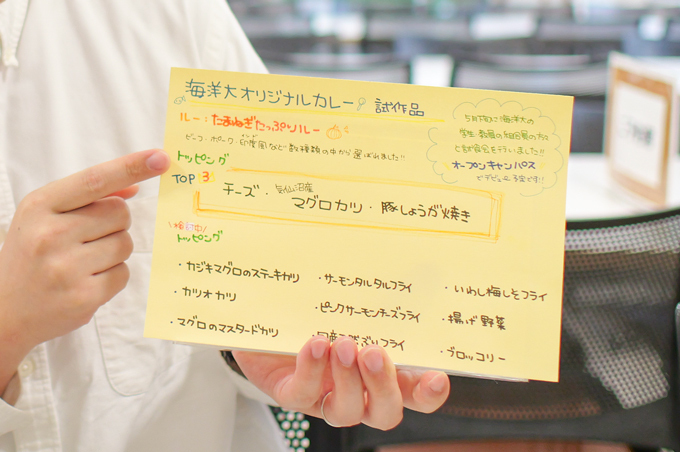 海洋大オリジナルカレー 試作品
ルー：たまねぎたっぷりルー
ビーフ・ポーク・印度風など数種類の中から選ばれました!!
5月下旬に海洋大の
学生・教職員の方々
と試食会を行いました!!
オープンキャンパス
でデビュー予定です!!
トッピング
TOP 3
チーズ・気仙沼産マグロカツ・豚しょうが焼き
トッピング
・カジキマグロのステーキカツ
・サーモンタルタルフライ
・いわし梅しそフライ
・カツオカツ
・ピンクサーモンチーズフライ
・揚げ野菜
・マグロのマスタードカツ
フライ
・ブロッコリー